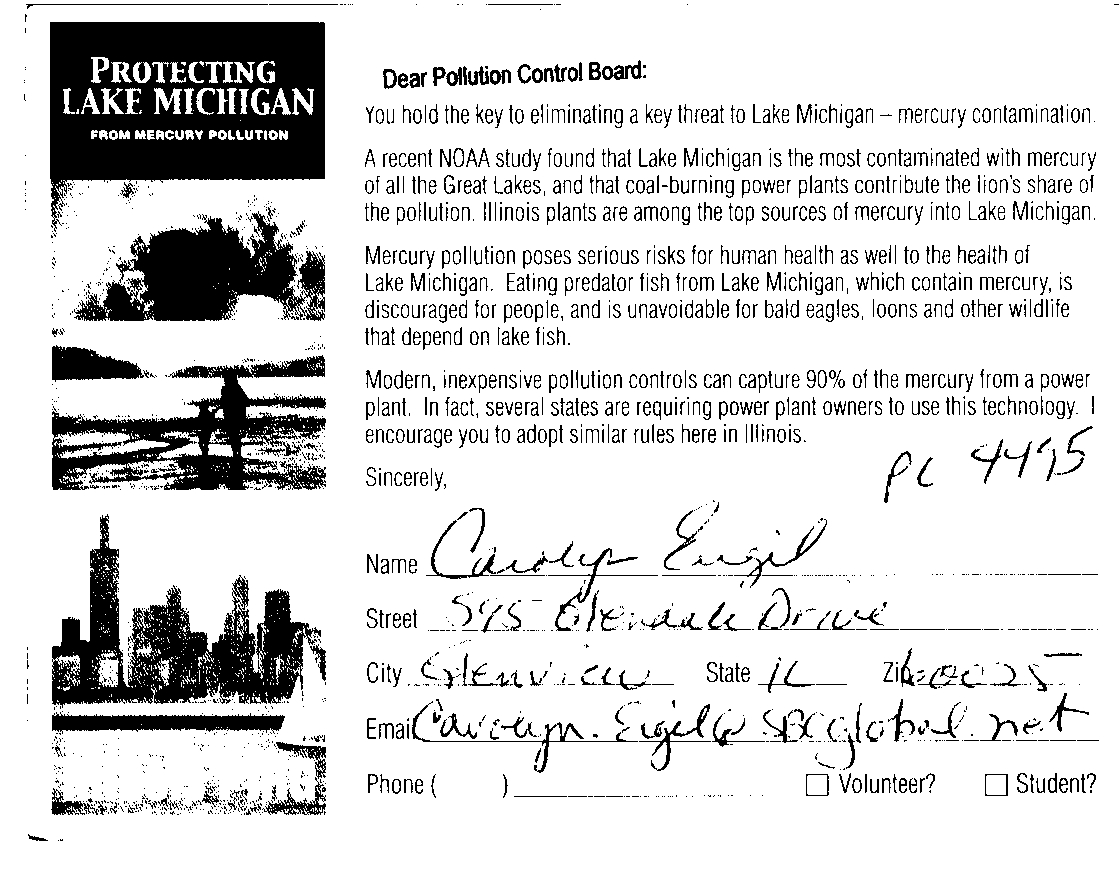 PROTECTING
LAKE MICHIGAN
FROM MERCURY POLLUTION
Dear Pollution Control Board:
You hold the key to eliminating a key threat to Lake Michigan – mercury contamination.
A recent NOAA study found that Lake Michigan is the most contaminated with mercury
of all the Great Lakes, and that coal-burning power plants contribute the lion's share of
the pollution. Illinois plants are among the top sources of mercury into Lake Michigan.
Mercury pollution poses serious risks for human health as well to the health of
Lake Michigan. Eating predator fish from Lake Michigan, which contain mercury, is
discouraged for people, and is unavoidable for bald eagles, loons and other wildlife
that depend on lake fish.
Modern, inexpensive pollution controls can capture 90% of the mercury from a power
plant. In fact, several states are requiring power plant owners to use this technology. I
encourage you to adopt similar rules here in Illinois.
Sincerely,
PC 4495
Name Carolyn Eigil
Street 595 Glendale Drive
City Glenview State IL Zip 60025
Email Carolyn.Eigil@sbcglobal.net
Phone ( )
Volunteer? Student?